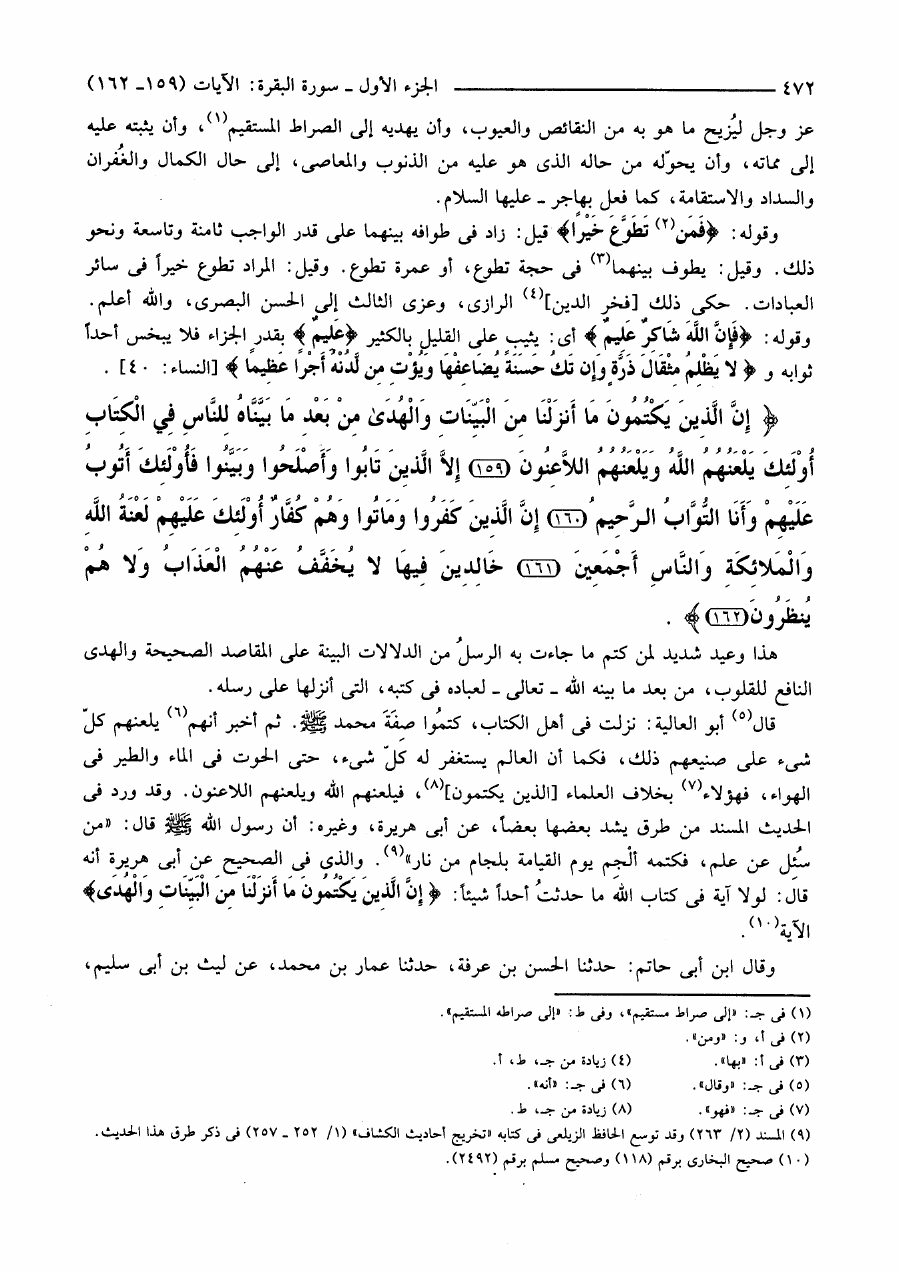 ٤٧٢ ــــــــــ الجزء الأول ـ سورة البقرة: الآيات (١٥٩ـ ١٦٢)
عز وجل ليُزيح ما هو به من النقائص والعيوب، وأن يهديه إلى الصراط المستقيم(١)، وأن يثبته عليه
إلى مماته، وأن يحوّله من حاله الذى هو عليه من الذنوب والمعاصى، إلى حال الكمال والغُفران
والسداد والاستقامة، كما فعل بهاجر ـ عليها السلام.
وقوله: ﴿فَمَن(٢) تَطَوَّعَ خَيْرًا﴾ قيل: زاد فى طوافه بينهما على قدر الواجب ثامنة وتاسعة ونحو
ذلك. وقيل: يطوف بينهما(٣) فى حجة تطوع، أو عمرة تطوع. وقيل: المراد تطوع خيراً فى سائر
العبادات. حكى ذلك [فخر الدين](٤) الرازى، وعزى الثالث إلى الحسن البصرى، والله أعلم.
وقوله: ﴿فَإِنَّ اللَّهَ شَاكِرٌ عَلِيمٌ﴾ أى: يثيب على القليل بالكثير ﴿عَلِيمٌ﴾ بقدر الجزاء فلا يبخس أحداً
ثوابه و ﴿لا يَظْلِمُ مِثْقَالَ ذَرَّةٍ وَإِن تَكُ حَسَنَةً يُضَاعِفْهَا وَيُؤْتِ مِن لَّدُنْهُ أَجْرًا عَظِيماً﴾ [النساء: ٤٠] .
﴿إِنَّ الَّذِينَ يَكْتُمُونَ مَا أَنزَلْنَا مِنَ الْبَيِّنَاتِ وَالْهُدَىٰ مِنْ بَعْدِ مَا بَيَّنَّاهُ لِلنَّاسِ فِي الْكِتَابِ
أُوْلَئِكَ يَلْعَنُهُمُ اللَّهُ وَيَلْعَنُهُمُ اللاَّعِنُونَ (١٥٩) إِلاَّ الَّذِينَ تَابُوا وَأَصْلَحُوا وَبَيَّنُوا فَأُوْلَئِكَ أَتُوبُ
عَلَيْهِمْ وَأَنَا التَّوَّابُ الرَّحِيمُ (١٦٠) إِنَّ الَّذِينَ كَفَرُوا وَمَاتُوا وَهُمْ كُفَّارٌ أُوْلَئِكَ عَلَيْهِمْ لَعْنَةُ اللَّهِ
وَالْمَلائِكَةِ وَالنَّاسِ أَجْمَعِينَ (١٦١) خَالِدِينَ فِيهَا لا يُخَفَّفُ عَنْهُمُ الْعَذَابُ وَلا هُمْ
يُنظَرُونَ (١٦٢)﴾ .
هذا وعيد شديد لمن كتم ما جاءت به الرسلُ من الدلالات البينة على المقاصد الصحيحة والهدى
النافع للقلوب، من بعد ما بينه الله ـ تعالى ـ لعباده فى كتبه، التى أنزلها على رسله.
قال(٥) أبو العالية: نزلت فى أهل الكتاب، كتمُوا صفَةَ محمد ﷺ. ثم أخبر أنهم(٦) يلعنهم كلّ
شىء على صنيعهم ذلك، فكما أن العالم يستغفر له كلّ شىء، حتى الحوت فى الماء والطير فى
الهواء، فهؤلاء(٧) بخلاف العلماء [الذين يكتمون](٨)، فيلعنهم الله ويلعنهم اللاعنون. وقد ورد فى
الحديث المسند من طرق يشد بعضها بعضاً، عن أبى هريرة، وغيره: أن رسول الله ﷺ قال: «من
سئِل عن علم، فكتمه ألْجِم يوم القيامة بلجام من نار»(٩). والذى فى الصحيح عن أبى هريرة أنه
قال: لولا آية فى كتاب الله ما حدثتُ أحداً شيئاً: ﴿إِنَّ الَّذِينَ يَكْتُمُونَ مَا أَنزَلْنَا مِنَ الْبَيِّنَاتِ وَالْهُدَى﴾
الآية(١٠).
وقال ابن أبى حاتم: حدثنا الحسن بن عرفة، حدثنا عمار بن محمد، عن ليث بن أبى سليم،
(١) فى جـ: «إلى صراط مستقيم»، وفى ط: «إلى صراطه المستقيم».
(٢) فى أ، و: «ومن».
(٣) فى أ: «بها». (٤) زيادة من جـ، ط، أ.
(٥) فى جـ: «وقال». (٦) فى جـ: «أنه».
(٧) فى جـ: «فهو». (٨) زيادة من جـ، ط.
(٩) المسند (٢/ ٢٦٣) وقد توسع الحافظ الزيلعى فى كتابه «تخريج أحاديث الكشاف» (١/ ٢٥٢ ـ ٢٥٧) فى ذكر طرق هذا الحديث.
(١٠) صحيح البخارى برقم (١١٨) وصحيح مسلم برقم (٢٤٩٢).